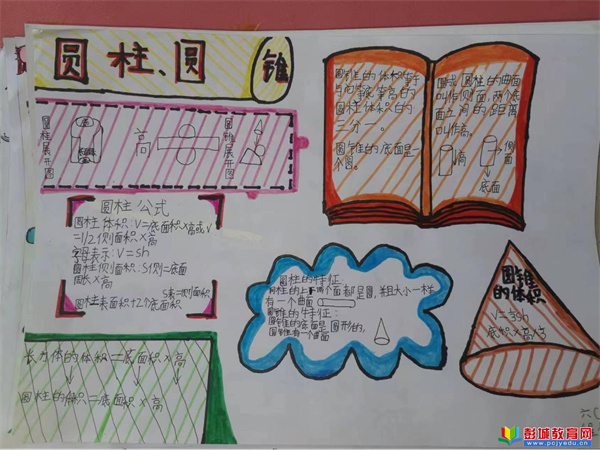 圆柱、圆
锥
圆柱展开图
高
圆锥展开图
圆柱公式
圆柱体积:V=底面积×高或V
=1/2侧面积×高
字母表示:V=sh
圆柱侧面积:S侧=底面
周长×高
S表=侧面积
圆柱表面积+2个底面积
长方体的体积=底面积×高
圆柱的体积=底面积×高
圆锥的体积等于
与它等底等高的
圆柱体积的
三分一。
圆锥的底面是
个圆。
圆柱的曲面
叫作侧面,两个底
面之间的距离
叫作高,
高
侧面
底面
圆柱的特征:
圆柱的上下两个面都是圆,并且大小一样
有一个曲面
圆锥的特征:
圆锥的底面是圆形的,
圆锥有一个曲面
圆锥
的体积
V=⅓sh
底积×高×⅓
六
彭城教育网
www.pcjyedu.cn